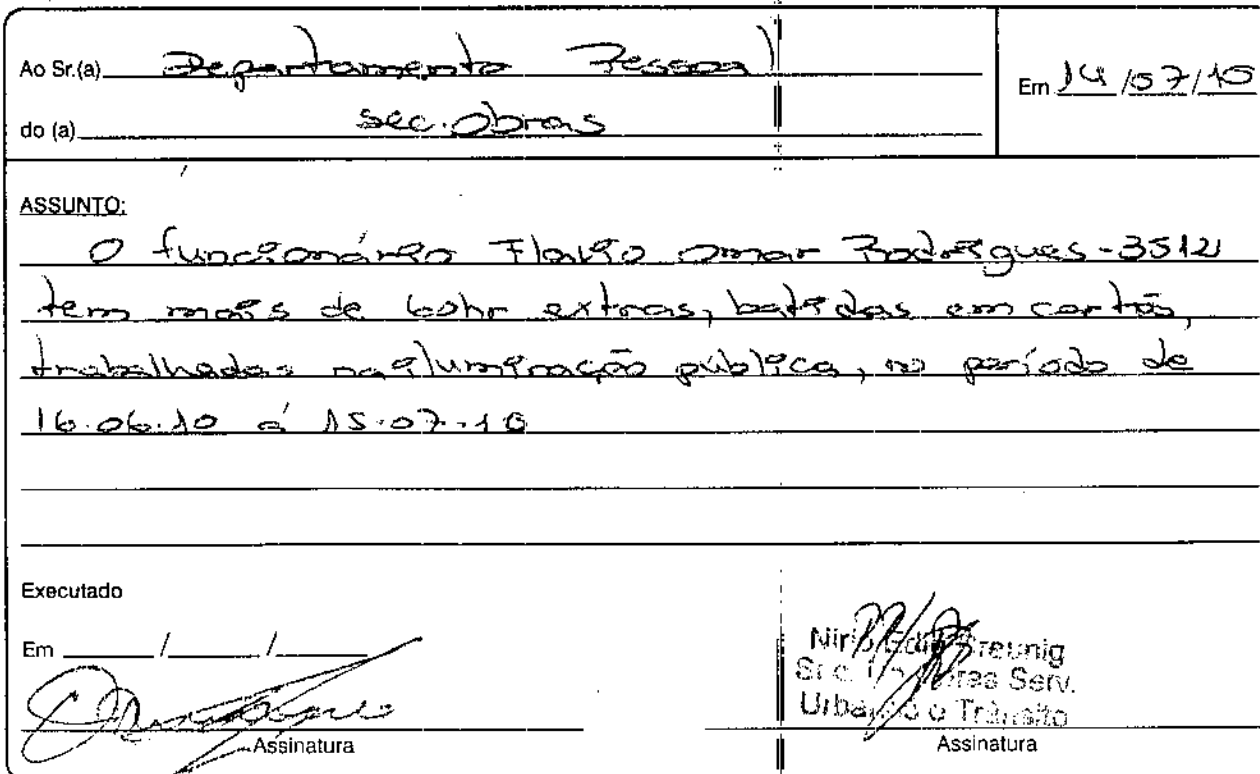 Ao Sr.(a) Departamento Pessoal
Em 14/07/10
do (a) Sec. Obras
ASSUNTO:
O funcionário Flavio Omar Rodrigues - 3512
tem mais de 60hr extras, batidas em cartão,
trabalhadas na iluminação pública, no período de
16.06.10 á 15.07.10
Executado
Em / /
Assinatura
Serv.
Trânsito
Assinatura